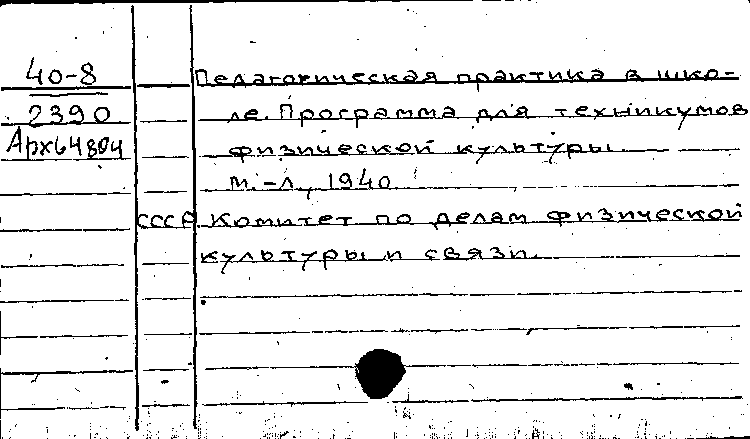 40-8
Педагогическая практика в шко-
2390
ле. Программа для техникумов
Арх64804
физической культуры.
М.-Л., 1940.
СССР. Комитет по делам физической
культуры и связи.